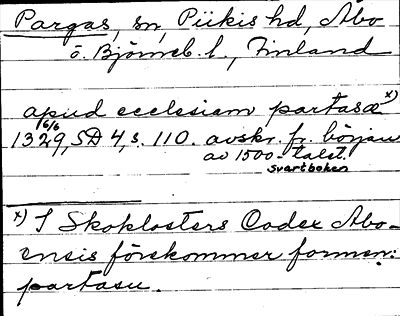 Pargas, sn, Piikis hd, Åbo
o. Björneb. l., Finland
apud ecclesiam partasæ x)
1329 6/6, SD 4, s. 110. avskr. fr. början
av 1500-talet.
svartboken
x) I Skoklosters Codex Abo-
ensis förekommer formen:
partasu.